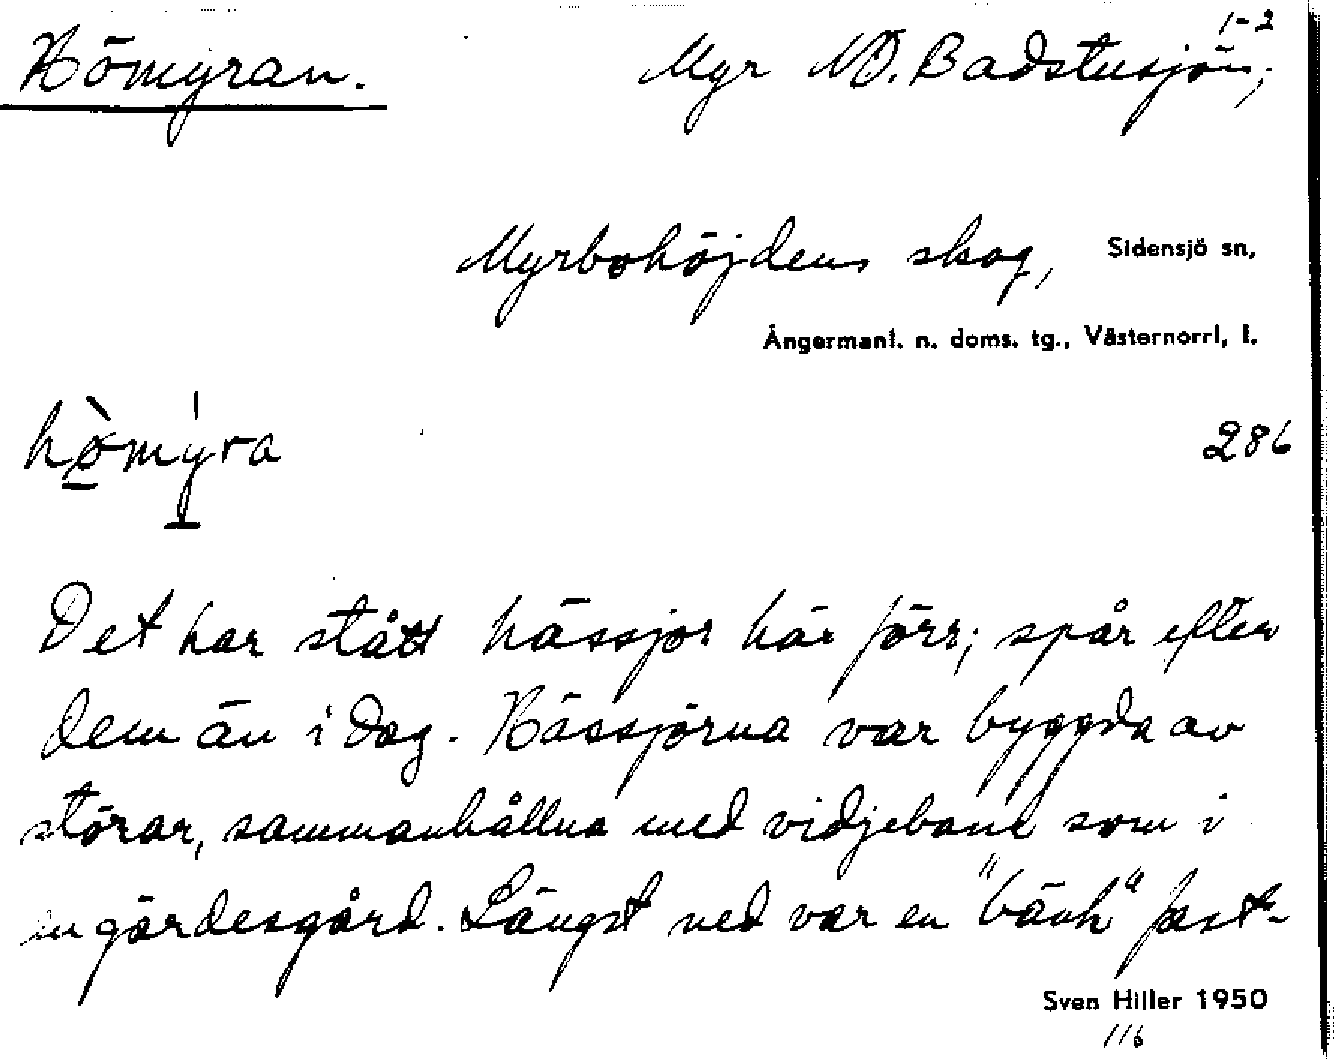 Hömyran. Myr NO. Badstusjön, 1-2
Myrbohöjdens skog, Sidensjö sn,
Ångermanl. n. doms. tg., Västernorrl, l.
hø̀my̍ra 286
Det har stått hässjor här förr; spår efter
dem än i dag. Hässjorna var byggda av
störar, sammanhållna med vidjeband som i
en gärdesgård. Längst ned var en "bänk" fast-
Sven Hiller 1950
116